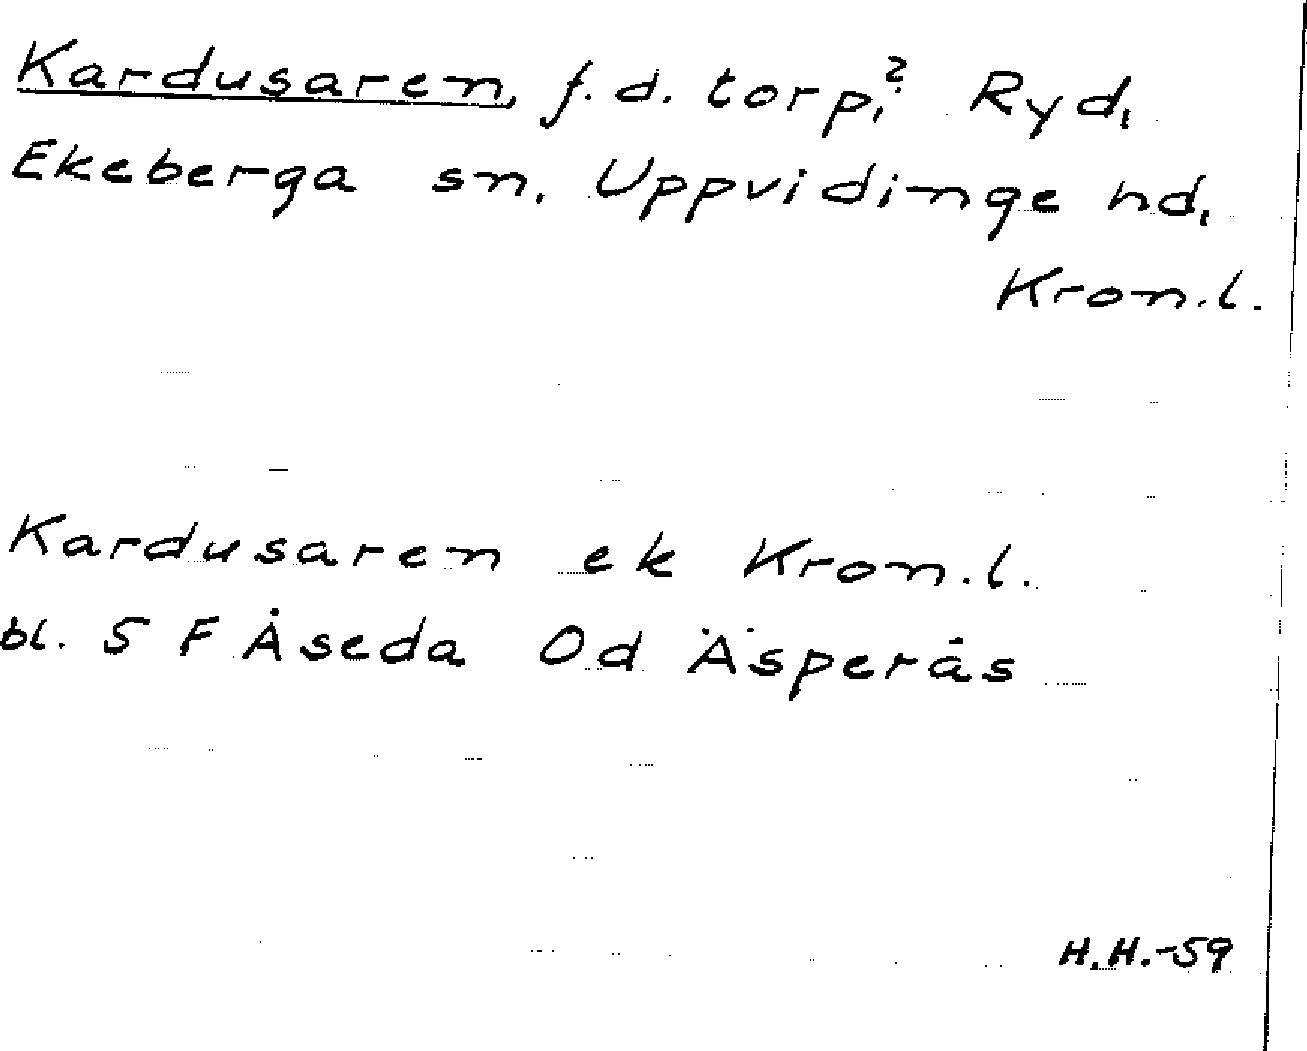 Kardusaren, f.d. torp,? Ryd,
Ekeberga sn. Uppvidinge hd,
Kron.l.
Kardusaren ek Kron.l.
bl. 5 F Åseda Od Äsperås
H.H.-59